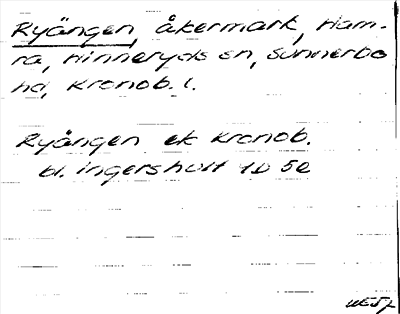 Ryängen, åkermark, Ham-
ra, Hinneryds sn, Sunnerbo
hd, Kronob. l.
Ryången ek Kronob.
bl. Ingershult 4D 5e